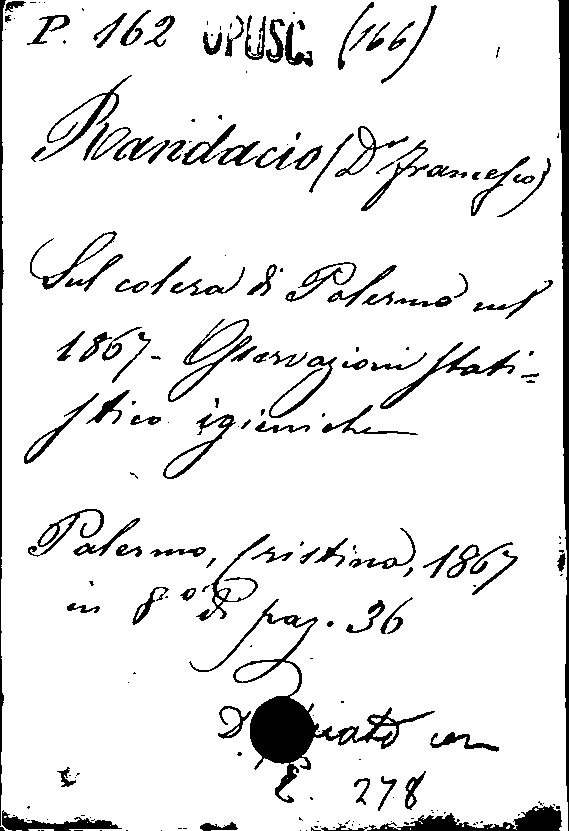 P. 162 OPUSC. (166)
Randacio (Dr Francesco)
Sul colera di Palermo nel
1867 - Osservazioni stati=
stico igieniche
Palermo, Cristina, 1867
in 8º di pag. 36
con
E. 278